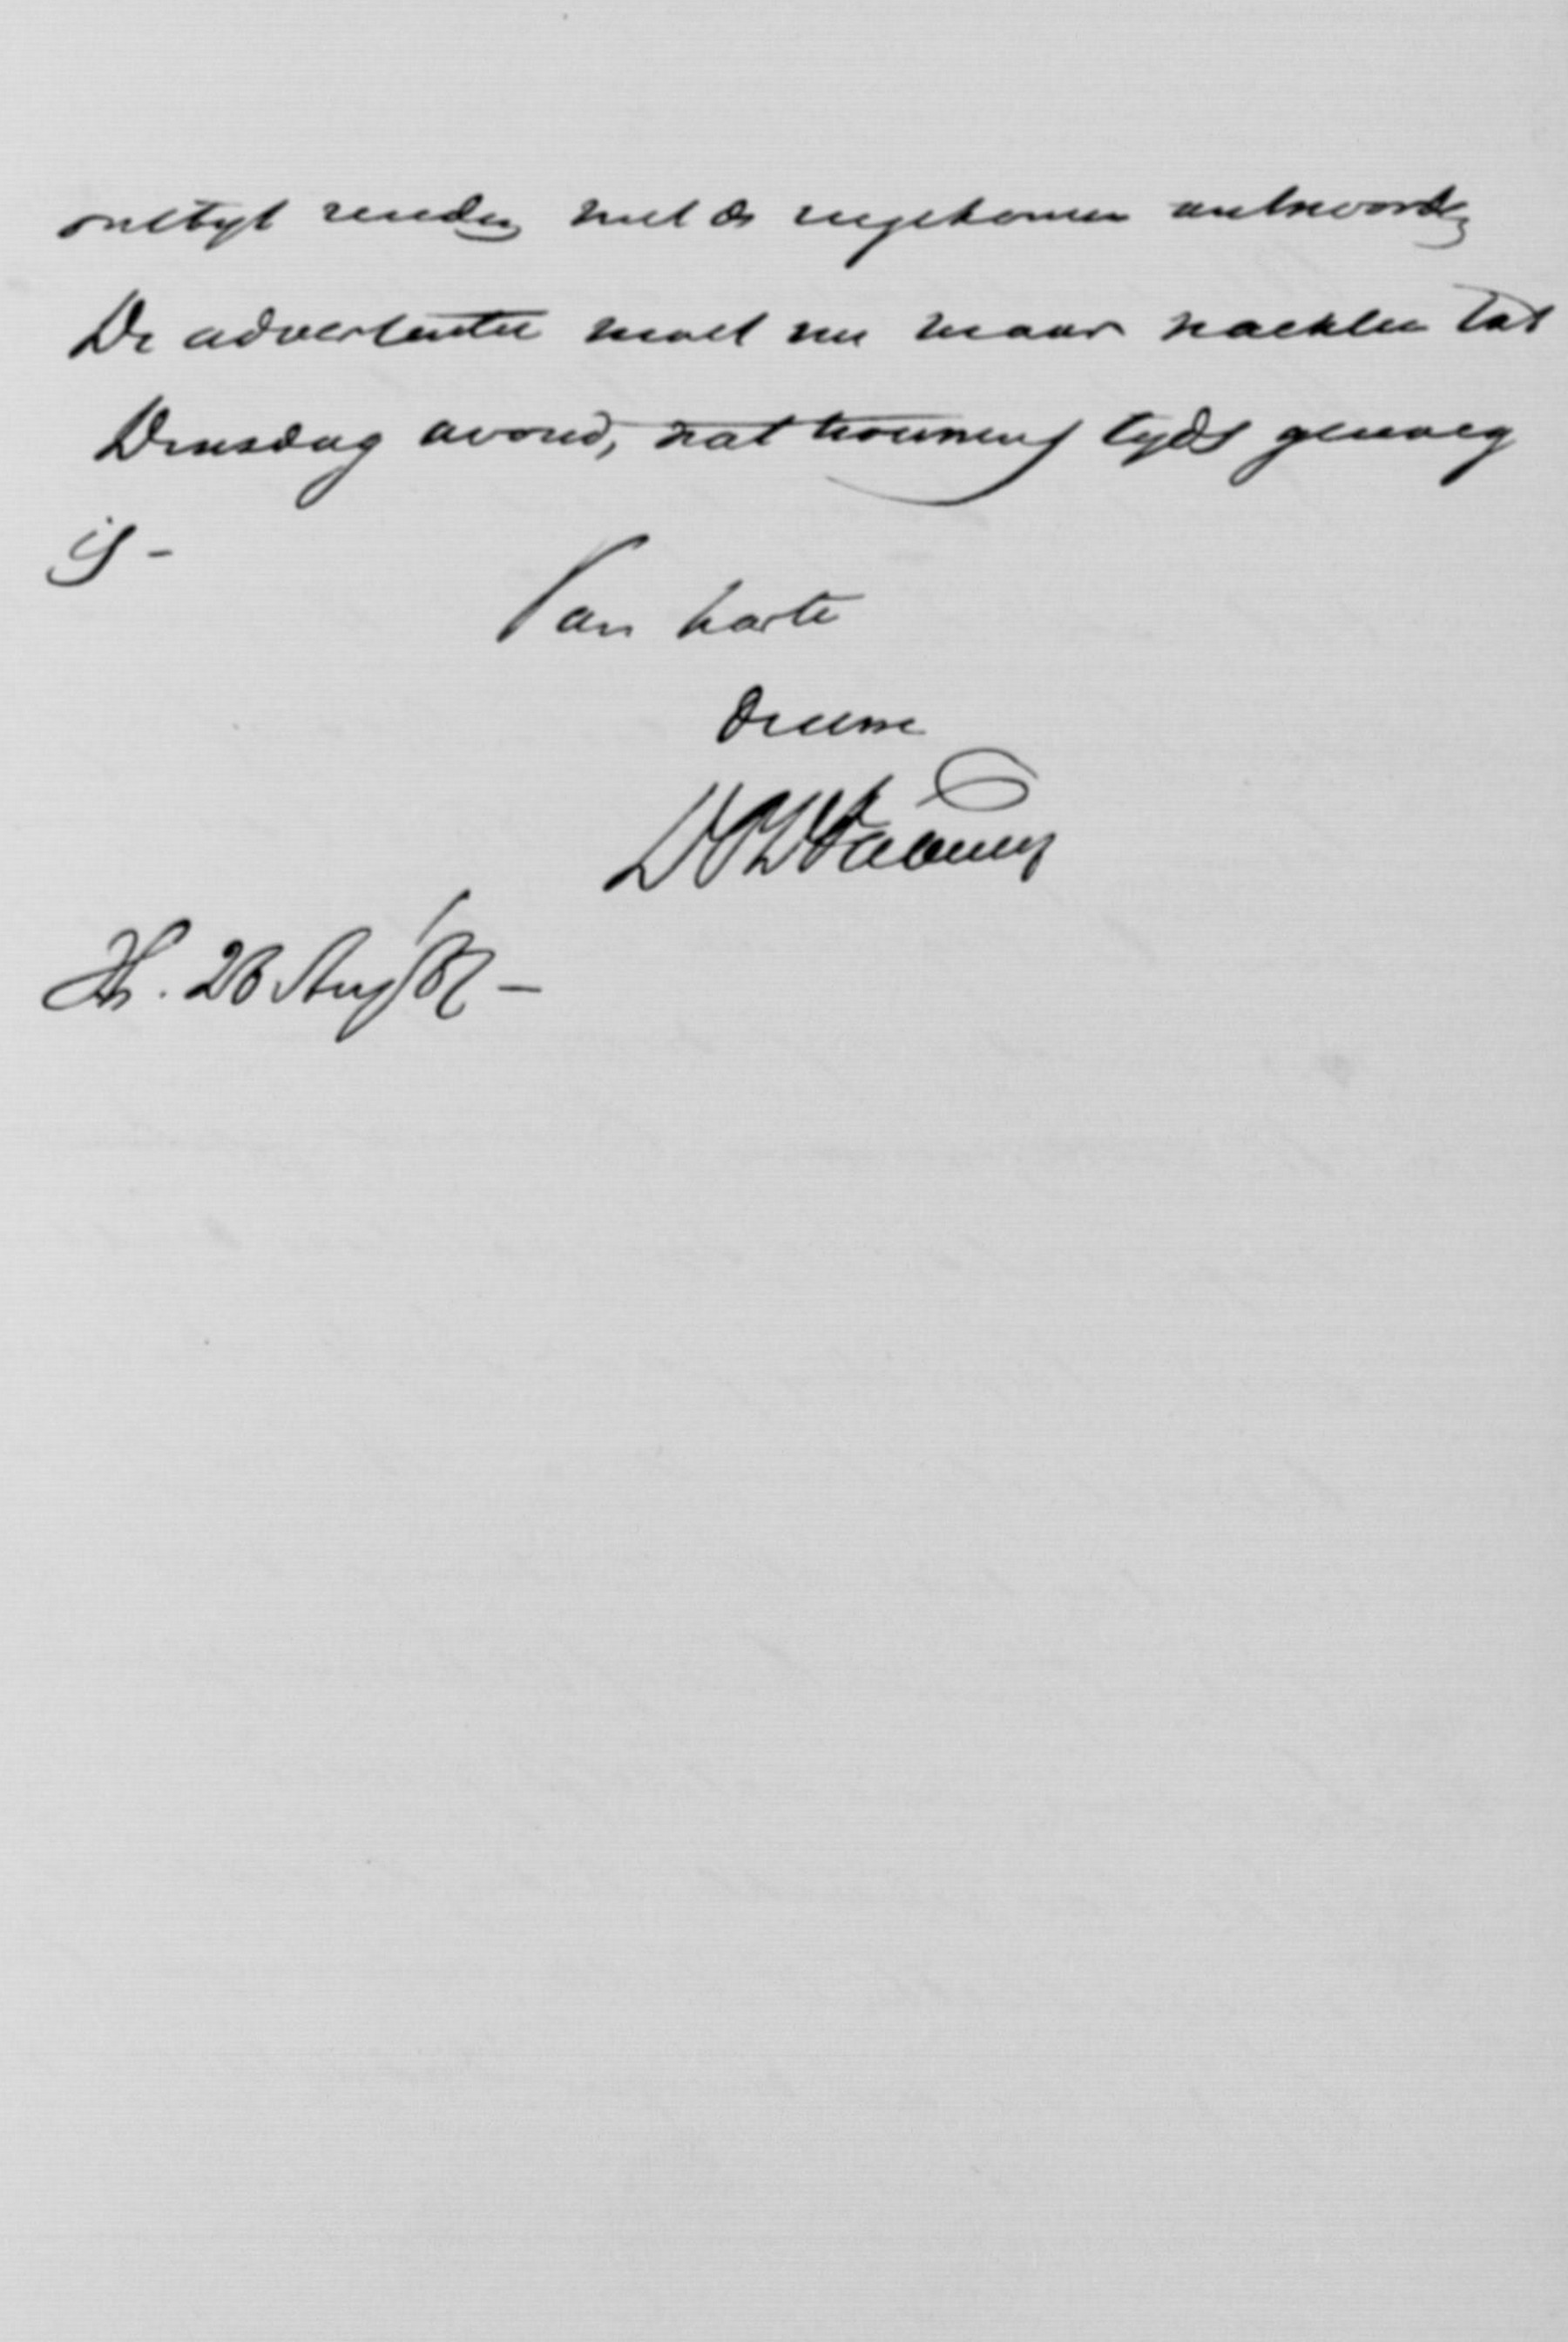 ontbyt zenden met de ingekomen antwoorden
De advertentie moet nu maar wachten tot
Dinsdag avond, wat trouwens tyds genoeg
is -
Van harte
Uwe
28 Aug/87 -